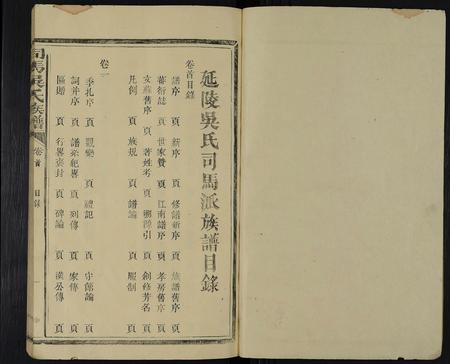 延陵吳氏司馬派族譜目錄
卷首目錄
譜序 頁 新序 頁 修譜新序 頁 族譜舊序 頁
蕃衍誌 頁 世家贊 頁 江南譜序 頁 孝房舊序 頁
安蘇舊序 頁 著姓考 頁 鄉譜引 頁 創修芳名 頁
凡例 頁 族規 頁 譜論 頁 服制 頁
卷一
季扎序 頁 觀樂 頁 禮記 頁 守節論 頁
詞并序 頁 譜系紀畧 頁 列傳 頁 家傳 頁
區贈 頁 行畧褒封 頁 碑論 頁 漢公傳 頁
司馬吳氏族譜 卷首 目錄